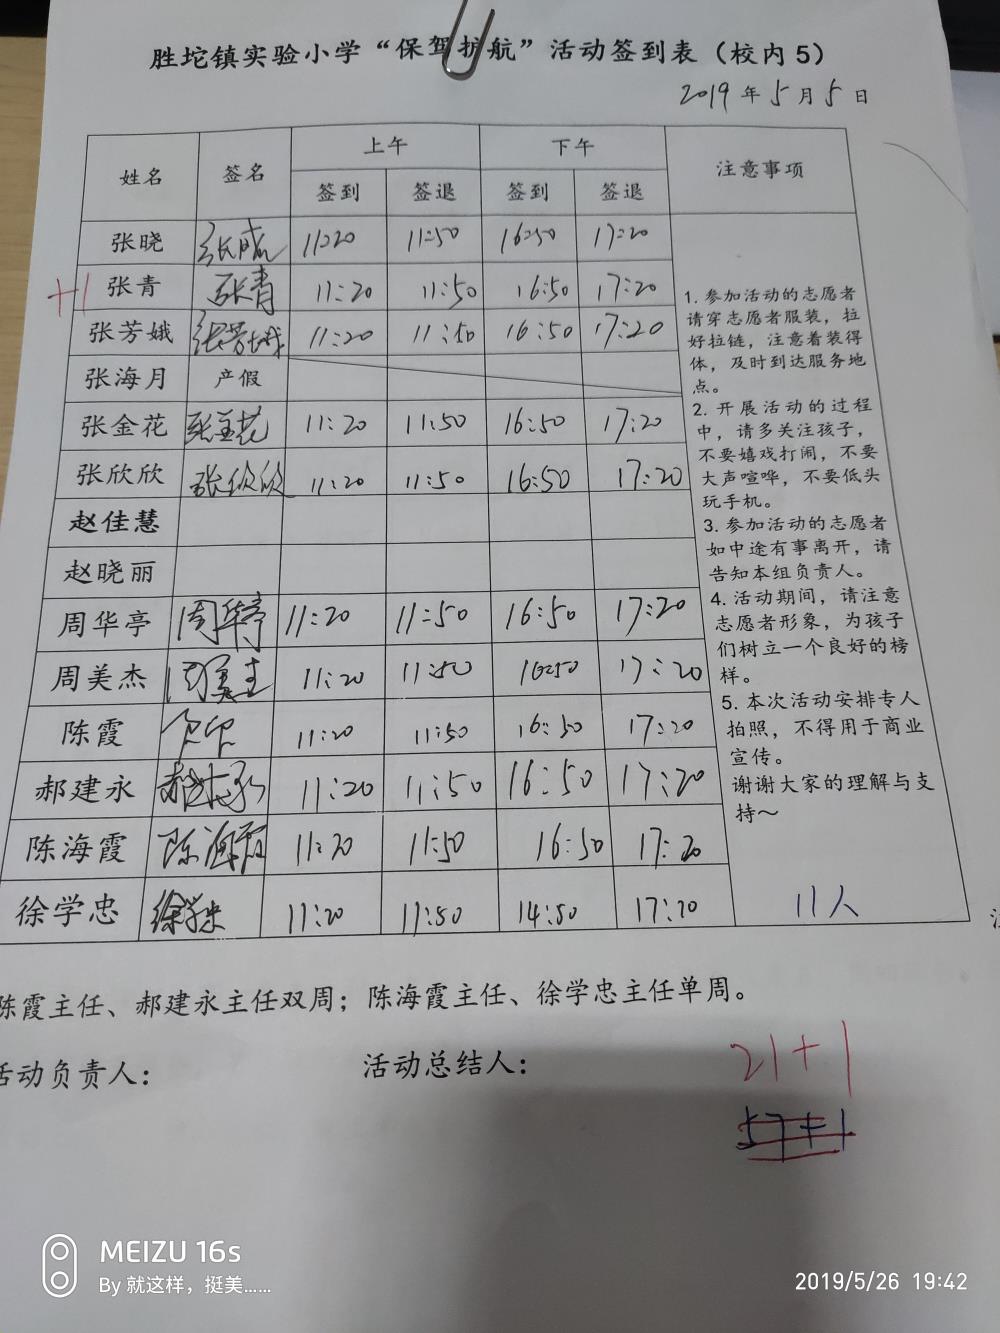 胜坨镇实验小学“保驾护航”活动签到表（校内5）
2019年5月5日
姓名 签名 上午 下午 注意事项
签到 签退 签到 签退
张晓 11:20 11:50 16:50 17:20
+1 张青 张青 11:20 11:50 16:50 17:20
张芳娥 张芳娥 11:20 11:50 16:50 17:20
张海月 产假
张金花 张金花 11:20 11:50 16:50 17:20
张欣欣 张欣欣 11:20 11:50 16:50 17:20
赵佳慧
赵晓丽
周华亭 周华亭 11:20 11:50 16:50 17:20
周美杰 周美杰 11:20 11:50 16:50 17:20
陈霞 11:20 11:50 16:50 17:20
郝建永 郝建永 11:20 11:50 16:50 17:20
陈海霞 陈海霞 11:20 11:50 16:50 17:20
徐学忠 徐学忠 11:20 11:50 14:50 17:20
1. 参加活动的志愿者
请穿志愿者服装，拉
好拉链，注意着装得
体，及时到达服务地
点。
2. 开展活动的过程
中，请多关注孩子，
不要嬉戏打闹，不要
大声喧哗，不要低头
玩手机。
3. 参加活动的志愿者
如中途有事离开，请
告知本组负责人。
4. 活动期间，请注意
志愿者形象，为孩子
们树立一个良好的榜
样。
5. 本次活动安排专人
拍照，不得用于商业
宣传。
谢谢大家的理解与支
持～
11人
陈霞主任、郝建永主任双周；陈海霞主任、徐学忠主任单周。
活动负责人： 活动总结人：
21+1
57+1
MEIZU 16s
By 就这样，挺美......
2019/5/26 19:42